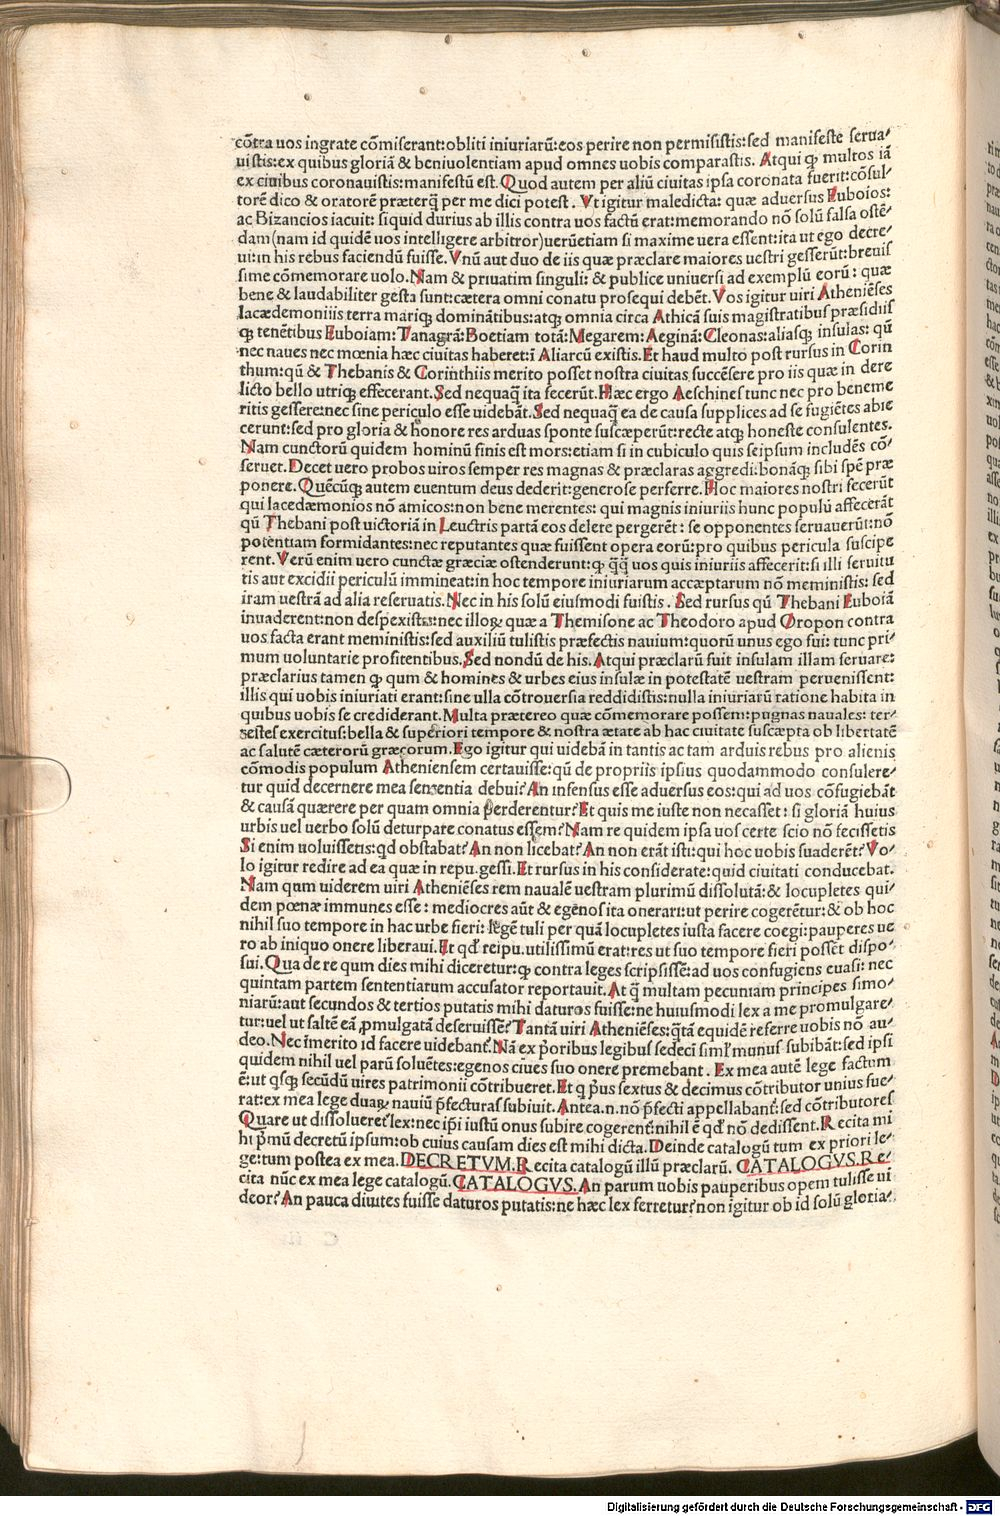 cõtra uos ingrate cõmiserant:obliti iniuriarũ:eos perire non permisistis:sed manifeste serua-
uistis:ex quibus gloriã & beniuolentiam apud omnes uobis comparastis. Atqui ꝙ multos iã
ex ciuibus coronauistis:manifestũ est. Quod autem per aliũ ciuitas ipsa coronata fuerit:cõsul-
torẽ dico & oratorẽ præterq̃ per me dici potest. Vt igitur maledicta: quæ aduersus Euboios:
ac Bizancios iacuit: siquid durius ab illis contra uos factũ erat:memorando nõ solũ falsa ostẽ-
dam(nam id quidẽ uos intelligere arbitror)uerũetiam si maxime uera essent:ita ut ego decre-
ui:in his rebus faciendũ fuisse. Vnũ aut duo de iis quæ præclare maiores uestri gesserũt:breuis
sime cõmemorare uolo. Nam & priuatim singuli: & publice uniuersi ad exemplũ eorũ: quæ
bene & laudabiliter gesta sunt:cætera omni conatu prosequi debẽt. Vos igitur uiri Atheniẽses
lacædemoniiis terra mariqꝫ dominãtibus:atqꝫ omnia circa Athicã suis magistratibus præsidiis
qꝫ tenẽtibus Euboiam: Tanagrã: Boetiam totã: Megarem: Aeginã: Cleonas:aliasqꝫ insulas: qũ
nec naues nec mœnia hæc ciuitas haberet:ĩ Aliarcũ existis. Et haud multo post rursus in Corin
thum:qũ & Thebanis & Corinthiis merito posset nostra ciuitas succẽsere pro iis quæ in dere
licto bello utriqꝫ effecerant. Sed nequaq̃ ita fecerũt. Hæc ergo Aeschines tunc nec pro beneme
ritis gessere:nec sine periculo esse uidebãt. Sed nequaq̃ ea de causa supplices ad se fugiẽtes abie
cerunt:sed pro gloria & honore res arduas sponte suscæperũt:recte atqꝫ honeste consulentes.
Nam cunctorũ quidem hominũ finis est mors:etiam si in cubiculo quis seipsum includẽs cõ-
seruet. Decet uero probos uiros semper res magnas & præclaras aggredi:bonãqꝫ sibi spẽ præ
ponere. Quẽcũqꝫ autem euentum deus dederit:generose perferre. Hoc maiores nostri fecerũt
qui lacedæmonios nõ amicos:non bene merentes: qui magnis iniuriis hunc populũ affecerãt
qũ Thebani post uictoriã in Leuctris partã eos delere pergerẽt: se opponentes seruauerũt:nõ
potentiam formidantes:nec reputantes quæ fuissent opera eorũ:pro quibus pericula suscipe
rent. Verũ enim uero cunctæ græciæ ostenderunt:ꝙ q̃q̃ uos quis iniuriis affecerit:si illi seruitu
tis aut excidii periculũ immineat:in hoc tempore iniuriarum accæptarum nõ meministis: sed
iram uestrã ad alia reseruatis. Nec in his solũ eiusmodi fuistis. Sed rursus qũ Thebani Euboiã
inuaderent:non despexistis:nec illoꝝ quæ a Themisone ac Theodoro apud Oropon contra
uos facta erant meministis:sed auxiliũ tulistis præfectis nauium:quorũ unus ego fui: tunc pri-
mum uoluntarie profitentibus. Sed nondũ de his. Atqui præclarũ fuit insulam illam seruare:
præclarius tamen ꝙ qum & homines & urbes eius insulæ in potestatẽ uestram peruenissent:
illis qui uobis iniuriati erant:sine ulla cõtrouersia reddidistis:nulla iniuriarũ ratione habita in
quibus uobis se crediderant. Multa prætereo quæ cõmemorare possem:pugnas nauales: ter-
restes exercitus:bella & superiori tempore & nostra ætate ab hac ciuitate suscæpta ob libertatẽ
ac salutẽ cæterorũ græcorum. Ego igitur qui uidebã in tantis ac tam arduis rebus pro alienis
cõmodis populum Atheniensem certauisse:qũ de propriis ipsius quodammodo consulere-
tur quid decernere mea sententia debui? An infensus esse aduersus eos:qui ad uos cõfugiebãt
& causã quærere per quam omnia perderentur? Et quis me iuste non necasset: si gloriã huius
urbis uel uerbo solũ deturpare conatus essem? Nam re quidem ipsa uos certe scio nõ fecissetis
Si enim uoluissetis:qd obstabat? An non licebat? An non erãt isti:qui hoc uobis suaderẽt? Vo-
lo igitur redire ad ea quæ in repu.gessi. Et rursus in his considerate:quid ciuitati conducebat.
Nam qum uiderem uiri Atheniẽses rem naualẽ uestram plurimũ dissolutã:& locupletes qui-
dem pœnæ immunes esse: mediocres aũt & egẽnos ita onerari:ut perire cogerẽtur:& ob hoc
nihil suo tempore in hac urbe fieri: legẽ tuli per quã locupletes iusta facere coegi:pauperes ue
ro ab iniquo onere liberaui. Et qd reipu.utilissimũ erat:res ut suo tempore fieri possẽt dispo-
sui. Qua de re qum dies mihi diceretur:ꝙ contra leges scripsissẽ:ad uos confugiens euasi: nec
quintam partem sententiarum accusator reportauit. At q̃ multam pecuniam principes simo-
niarũ:aut secundos & tertios putatis mihi daturos fuisse:ne huiusmodi lex a me promulgare-
tur:uel ut saltẽ eã ꝓmulgatã deseruissẽ? Tantã uiri Atheniẽses:q̃tã equidẽ referre uobis nõ au-
deo. Nec ĩmerito id facere uidebant̃. Nã ex p̃oribus legibus sedecĩ siml̃ munus subibãt:sed ipsi
quidem nihil uel parũ soluẽtes:egenos ciues suo onere premebant. Ex mea autẽ lege factum
ẽ:ut qsqꝫ secũdũ uires patrimonii cõtribueret. Et q p̃us sextus & decimus cõtributor unius fue-
rat:ex mea lege duaꝝ nauiũ p̃fecturas subiuit. Antea.n.nõ p̃fecti appellabant̃:sed cõtributores
Quare ut dissolueret̃ lex:nec ip̃i iustũ onus subire cogerent̃:nihil ẽ qd nõ dedissent. Recita mi
hi p̃mũ decretũ ipsum:ob cuius causam dies est mihi dicta. Deinde catalogũ tum ex priori le-
ge:tum postea ex mea. DECRETVM. Recita catalogũ illũ præclarũ. CATALOGVS. Re-
cita nũc ex mea lege catalogũ. CATALOGVS. An parum uobis pauperibus opem tulisse ui
deor? An pauca diuites fuisse daturos putatis:ne hæc lex ferretur? non igitur ob id solũ gloria-
Digitalisierung gefördert durch die Deutsche Forschungsgemeinschaft - DFG